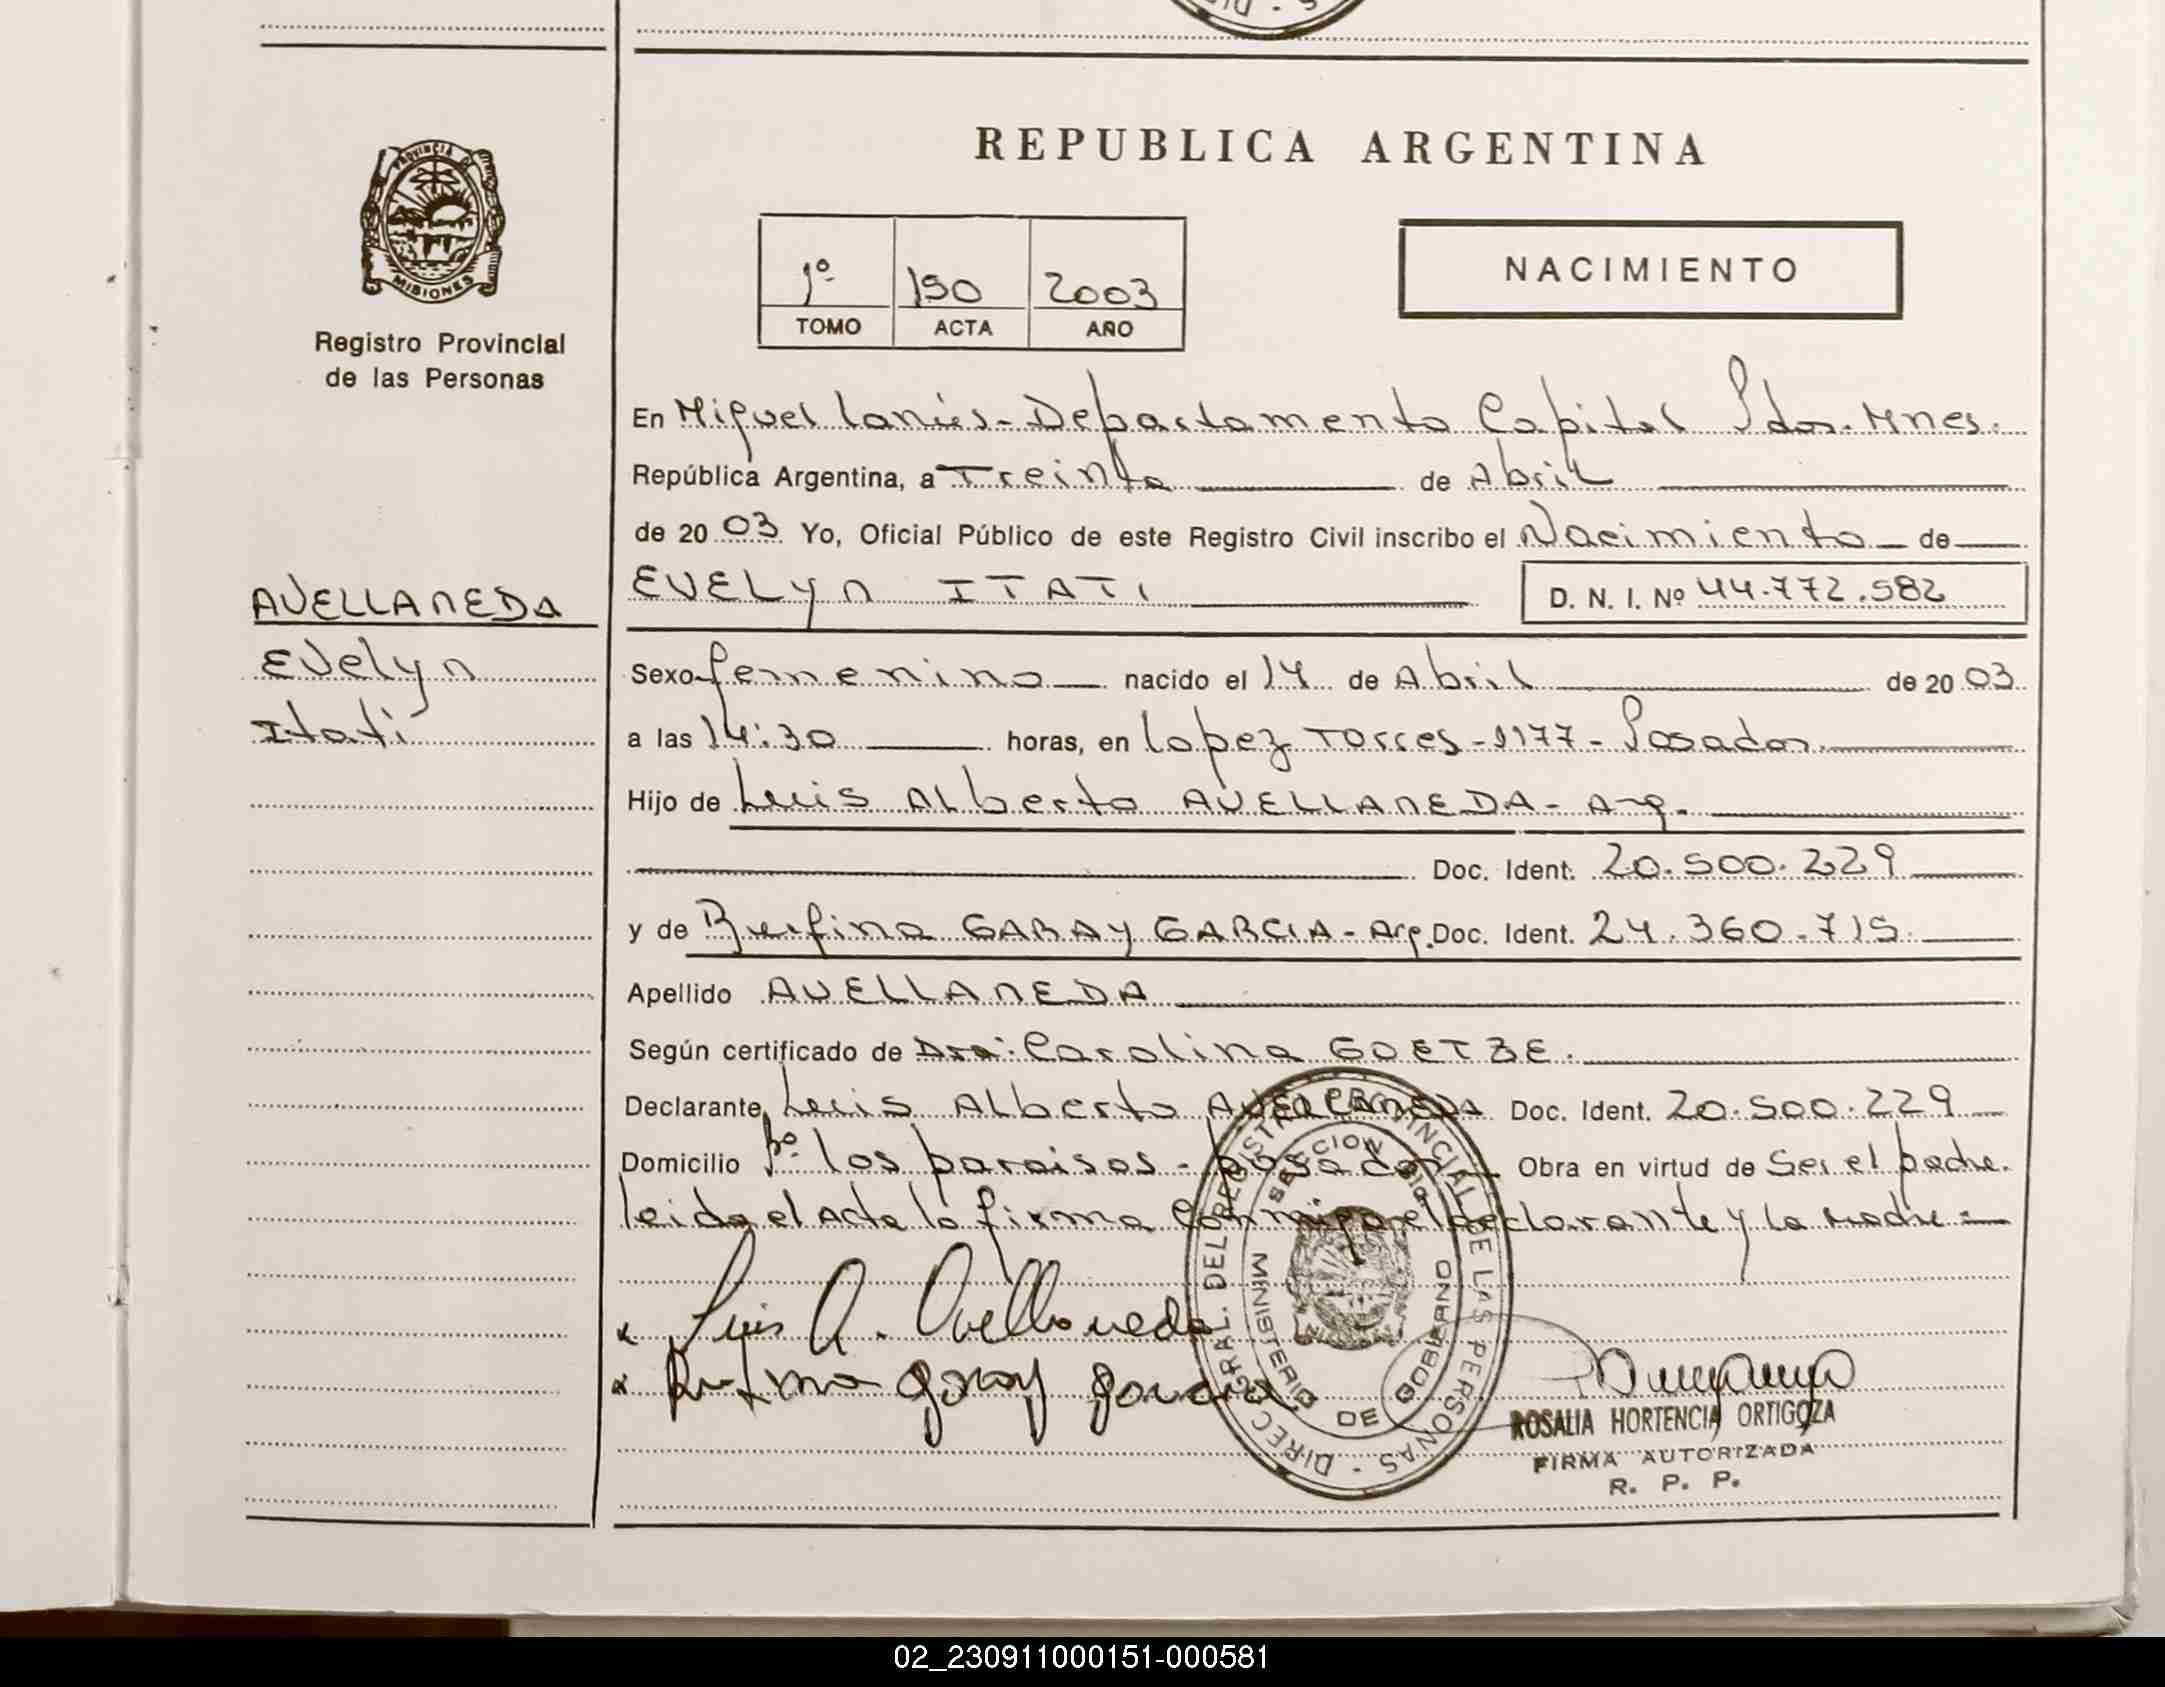 PROVINCIA DE
MISIONES
Registro Provincial
de las Personas
REPUBLICA ARGENTINA
1º 150 2003
TOMO ACTA AÑO
NACIMIENTO
En Miguel Lanús - Departamento Capital Pdas. Mnes.
República Argentina, a Treinta de Abril
de 2003 Yo, Oficial Público de este Registro Civil inscribo el Nacimiento de
AVELLANEDA
Evelyn
Itati
EVELYN ITATI D. N. I. Nº 44.772.582
Sexo femenino nacido el 14 de Abril de 2003
a las 14:30 horas, en Lopez Torres - 1177 - Posadas.
Hijo de Luis Alberto AVELLANEDA - Arg.
Doc. Ident. 20.500.229
y de Rufina GARAY GARCIA - Arg. Doc. Ident. 24.360.715
Apellido AVELLANEDA
Según certificado de Dra: Carolina GOETZE.
Declarante Luis Alberto AVELLANEDA Doc. Ident. 20.500.229
Domicilio Bº los paraisos - posadas Obra en virtud de Ser el padre.
leida el Acta la firma conmigo el declarante y la madre =
x Luis A. Avellaneda
x Rufina garay garcia
DIREC. GRAL. DEL REGISTRO PROVINCIAL DE LAS PERSONAS
MINISTERIO DE GOBIERNO
ROSALIA HORTENCIA ORTIGOZA
FIRMA AUTORIZADA
R. P. P.
02_230911000151-000581